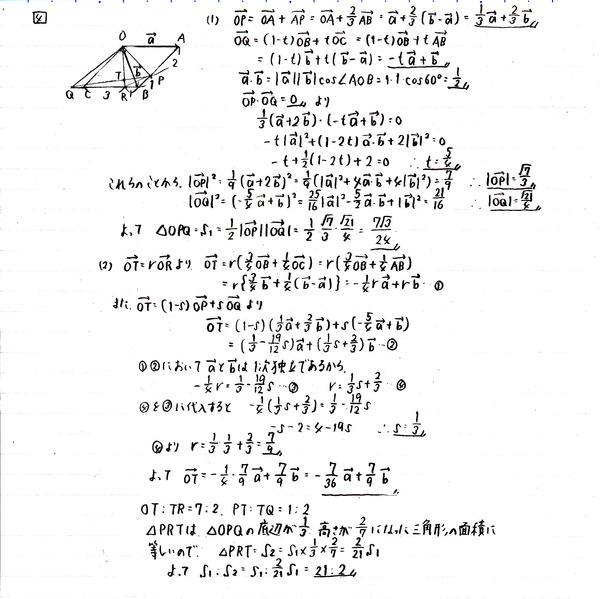 4
O
a
A
T
b
P
2
1
Q C 3 R 1 B
(1) OP = OA + AP = OA + 2/3 AB = a + 2/3 (b - a) = 1/3 a + 2/3 b
OQ = (1-t)OB + tOC = (1-t)OB + tAB
= (1-t)b + t(b-a) = -ta + b
a・b = |a||b|cos∠AOB = 1・1・cos60° = 1/2
OP・OQ = 0 より
1/3(a+2b)・(-ta+b)=0
-t|a|²+(1-2t)a・b+2|b|²=0
-t+1/2(1-2t)+2=0 ∴ t=5/4
これらのことから, |OP|²=1/9(a+2b)²=1/9(|a|²+4a・b+4|b|²)=7/9 ∴ |OP|=√7/3
|OQ|²=(-5/4a+b)²=25/16|a|²-5/2a・b+|b|²=21/16 ∴ |OQ|=√21/4
よって △OPQ=S₁=1/2|OP||OQ|=1/2・√7/3・√21/4=7√3/24
(2) OT=rOR より OT=r(3/4OB+1/4OC)=r(3/4OB+1/4AB)
=r{3/4b+1/4(b-a)}=-1/4ra+rb ①
また, OT=(1-s)OP+sOQ より
OT=(1-s)(1/3a+2/3b)+s(-5/4a+b)
=(1/3-19/12s)a+(1/3s+2/3)b ―②
①②において aとbは1次独立であるから,
-1/4r=1/3-19/12s ―③ r=1/3s+2/3 ④
④を③に代入すると -1/4(1/3s+2/3)=1/3-19/12s
-s-2=4-19s ∴ s=1/3
④より r=1/3・1/3+2/3=7/9
よって OT=-1/4・7/9a+7/9b=-7/36a+7/9b
OT:TR=7:2, PT:TQ=1:2
△PRTは △OPQの底辺が1/3 高さが2/7になった三角形の面積に
等しいので, △PRT=S₂=S₁×1/3×2/7=2/21S₁
よって S₁:S₂=S₁:2/21S₁=21:2